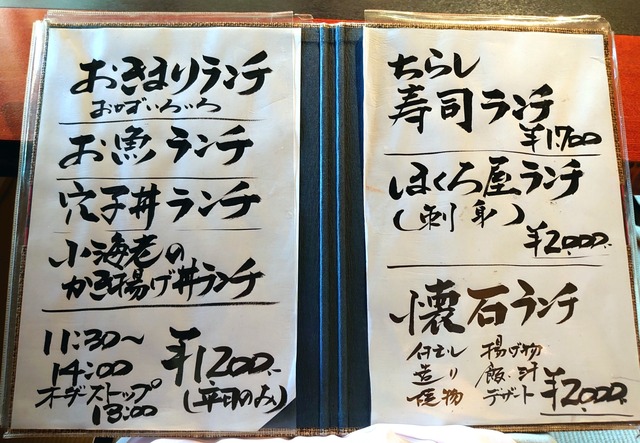 おきまりランチ
おかずいろいろ
お魚ランチ
穴子丼ランチ
小海老の
かき揚げ丼ランチ
11:30~
14:00
オーダーストップ
13:00
¥1200.-
(平日のみ)
ちらし
寿司ランチ
¥1,700
ほくろ屋ランチ
(刺身)
¥2,000.
懐石ランチ
付出し 揚げ物
造り 飯、汁
焼物 デザート
¥2,000.